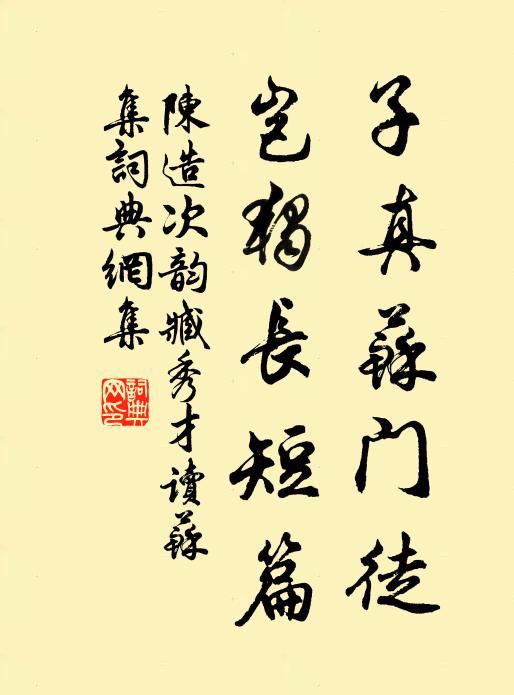 子真蘇門徒
豈獨長短篇
陳造次韵臧秀才讀蘇
集詞典網集
詞典网印